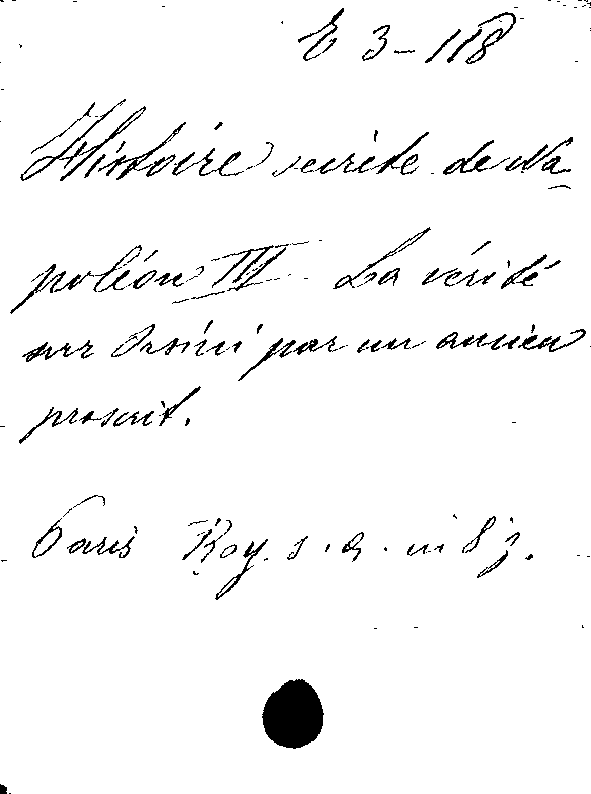 E 3-118
Histoire secrète de Na-
poléon III La vérité
sur Orsini par un ancien
proscrit.
Paris Roy. s. a. in 8j.